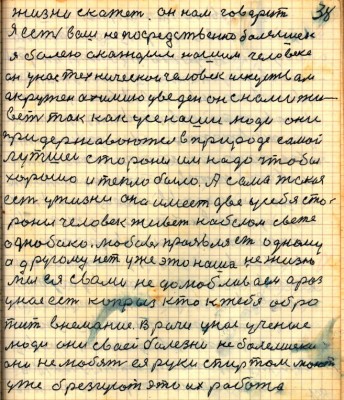 38
жизни скажет. он нам говарит
Я есть ваш непосредственно болеишей
я болею скаждим нашим человеке
он унас технический человек искуствам
акружен ахимию уведен он снами жи-
вет так как усе наши люди они
придержавоются в природе самой
лутшей стороны им надо чтобы
хорошо и тепло было. А сама жизня
есть ужизни она имеет две усебя сто-
роны человек живет на белом свете
однобако. любовь проявляет одному
а другому нет уже это наша не жизнь
мы ея свами не долюбливаем а раз
унас есть копрыз кто ктебя обро
тит внемание. Врачи унас ученые
люди они своей болезни не болеишеи
они не любят ея руки спиртом моют
уже брезгуют это их работа